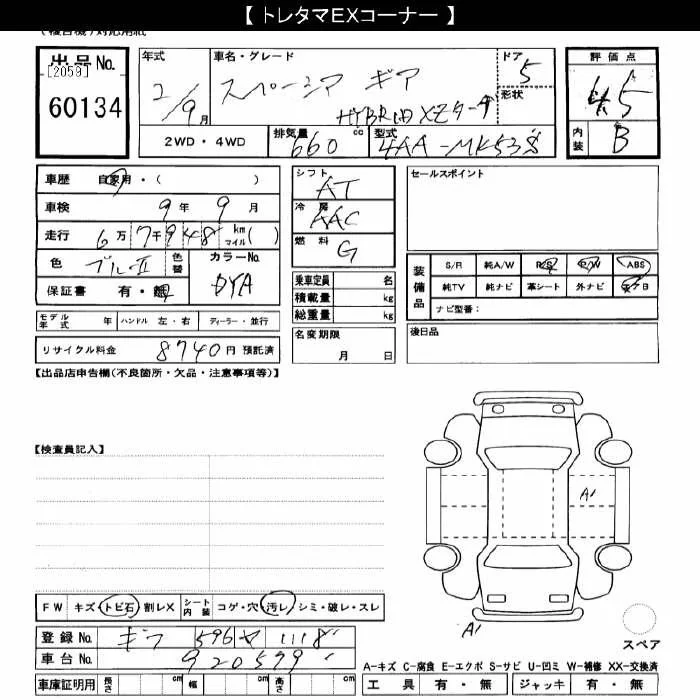 【 トレタマEXコーナー 】
(複合機)対応用紙
出品No. [2059] 60134
年式 2/9月
車名・グレード スペーシア ギア HYBRID XZターボ
ドア 5
形状
評価点 4.5
内装 B
2WD・4WD
排気量 660 cc
型式 4AA-MK53S
車歴 自家用・( )
車検 9年 9月
走行 6万7千948 km マイル( )
色 ブルーII 色替 カラーNo. DYA
保証書 有・無
モデル年式 年 ハンドル 左・右 ディーラー・並行
リサイクル料金 8740円 預託済
シフト AT
冷房 AAC
燃料 G
乗車定員 名
積載量 kg
総重量 kg
名変期限 月 日
セールスポイント
装備品 S/R 純A/W P/S P/W ABS
純TV 純ナビ 革シート 外ナビ エアB
ナビ型番:
後日品
【出品店申告欄(不良箇所・欠品・注意事項等)】
【検査員記入】
A1
A1
スペア
FW キズ・トビ石・割レX シート内装 コゲ・穴・汚レ・シミ・破レ・スレ
登録No. ギフ 596 1118
車台No. 920599
A-キズ C-腐食 E-エクボ S-サビ U-凹ミ W-補修 XX-交換済
車庫証明用 長さ cm 幅 cm 高さ cm
工具 有・無 ジャッキ 有・無